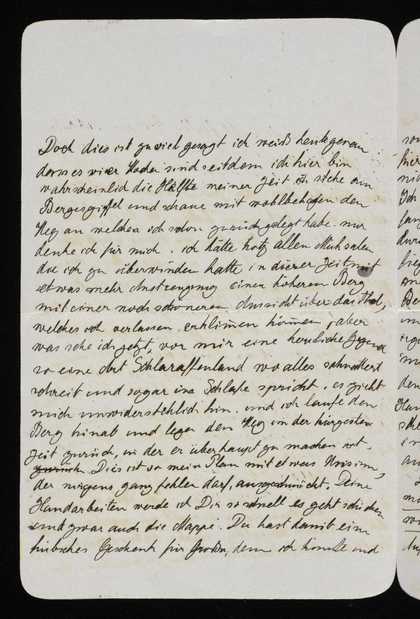 Doch dies ist zu viel gesagt ich weiß heute genau
dass es vier Wochen sind seitdem ich hier bin
wahrscheinlich die Hälfte meiner Zeit ich stehe am
Bergesgipfel und schaue mit wohlbehagen den
Weg an welchen ich schon zurückgelegt habe. nur
denke ich für mich. ich hätte trotz allen Mühsalen
die ich zu überwinden hatte in dieser Zeit mit
etwas mehr Anstrengung einen höheren Berg
mit einer noch schöneren Aussicht über das Thal,
welches ich verlassen, erklimmen können, aber
was sehe ich jetzt, vor mir eine herrliche Gegend
so eine Art Schlaraffenland wo alles schnattert
schreit und sogar im Schlafe spricht. es zieht
mich unwiderstehlich hin. und ich laufe den
Berg hinab und lege den Weg in der kürzesten
Zeit zurück, in der er überhaupt zu machen ist.
Dies ist so mein Plan mit etwas Unsinn,
der nirgens ganz fehlen darf, ausgeschmückt. Deine
Handarbeiten werde ich Dir so schnell es geht schicken
und zwar auch die Mappe. Du hast damit ein
hübsches Geschenk für denn ich konnte und